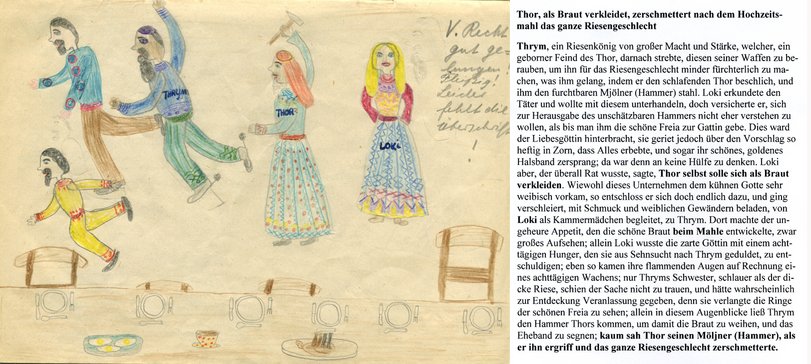 V. Recht
gut ge-
lungen!
Fleißig!
Leider
fehlt die
Überschrift
!
THRYM
THOR
LOKI
Thor, als Braut verkleidet, zerschmettert nach dem Hochzeits-
mahl das ganze Riesengeschlecht
Thrym, ein Riesenkönig von großer Macht und Stärke, welcher, ein
geborner Feind des Thor, darnach strebte, diesen seiner Waffen zu be-
rauben, um ihn für das Riesengeschlecht minder fürchterlich zu ma-
chen, was ihm gelang, indem er den schlafenden Thor beschlich, und
ihm den furchtbaren Mjölner (Hammer) stahl. Loki erkundete den
Täter und wollte mit diesem unterhandeln, doch versicherte er, sich
zur Herausgabe des unschätzbaren Hammers nicht eher verstehen zu
wollen, als bis man ihm die schöne Freia zur Gattin gebe. Dies ward
der Liebesgöttin hinterbracht, sie geriet jedoch über den Vorschlag so
heftig in Zorn, dass Alles erbebte, und sogar ihr schönes, goldenes
Halsband zersprang; da war denn an keine Hülfe zu denken. Loki
aber, der überall Rat wusste, sagte, Thor selbst solle sich als Braut
verkleiden. Wiewohl dieses Unternehmen dem kühnen Gotte sehr
weibisch vorkam, so entschloss er sich doch endlich dazu, und ging
verschleiert, mit Schmuck und weiblichen Gewändern beladen, von
Loki als Kammermädchen begleitet, zu Thrym. Dort machte der un-
geheure Appetit, den die schöne Braut beim Mahle entwickelte, zwar
großes Aufsehen; allein Loki wusste die zarte Göttin mit einem acht-
tägigen Hunger, den sie aus Sehnsucht nach Thrym geduldet, zu ent-
schuldigen; eben so kamen ihre flammenden Augen auf Rechnung ei-
nes achttägigen Wachens; nur Thryms Schwester, schlauer als der di-
cke Riese, schien der Sache nicht zu trauen, und hätte wahrscheinlich
zur Entdeckung Veranlassung gegeben, denn sie verlangte die Ringe
der schönen Freia zu sehen; allein in diesem Augenblicke ließ Thrym
den Hammer Thors kommen, um damit die Braut zu weihen, und das
Eheband zu segnen; kaum sah Thor seinen Möljner (Hammer), als
er ihn ergriff und das ganze Riesengeschlecht zerschmetterte.